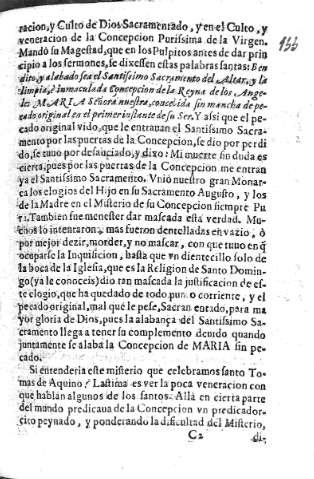 racion, y Culto de Dios Sacramentado, y en el Culto, y
veneracion de la Concepcion Purissima de la Virgen.
Mandó su Magestad, que en los Pulpitos antes de dar prin
cipio a los sermones, se dixessen estas palabras santas: Ben
dito, y alabado sea el Santissimo Sacramento del Altar, y la
limpia, è inmaculada Concepcion de la Reyna de los Ange-
les MARIA Señora nuestra, concebida sin mancha de pe-
cado original en el primer instante de su Ser. Y assi que el pe-
cado original vido, que le entrauan el Santissimo Sacra-
mento por las puertas de la Concepcion, se dio por perdi
do, se tuuo por desauciado, y dixo: Mi muerte sin duda es
cierta, pues por las puertas de la Concepcion me entran
ya el Santissimo Sacramento. Vniò nuestro gran Monar-
ca los elogios del Hijo en su Sacramento Augusto, y los
de la Madre en el Misterio de su Concepcion siempre Pu
ra. Tambien fue menester dar mascada esta verdad. Mu-
chos lo intentaron, mas fueron dentelladas en vazio, ò
por mejor dezir, morder, y no mascar, con que tuuo en que
ocuparse la Inquisicion, hasta que vn dientecillo solo de
la boca de la Iglesia, que es la Religion de Santo Domin-
go (ya le conoceis) dio tan mascada la justificacion de es-
te elogio, que ha quedado de todo punto corriente, y el
pecado original, mal que le pese, Sacramentado, para ma
yor gloria de Dios, pues la alabança del Santissimo Sa-
cramento llega a tener su complemento deuido quando
juntamente se alaba la Concepcion de MARIA sin pe-
cado.
Si entenderia este misterio que celebramos santo To-
mas de Aquino? Lastima es ver la poca veneracion con
que hablan algunos de los santos. Allà en cierta parte
del mundo predicaua de la Concepcion vn predicador-
cico peynado, y ponderando la dificultad del Misterio,
C2
di-